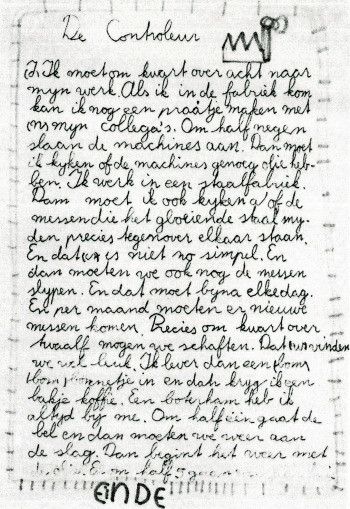 De Controleur
Ik moet om kwart over acht naar
myn werk. Als ik in de fabriek kom
kan ik nog een praatje maken met
myn collega's. Om half negen
slaan de machines aan. Dan moet
ik kyken of de machines genoeg olie heb-
ben. Ik werk in een staalfabriek.
Dam moet ik ook kyken of de
messen die het gloeiende staal my-
den precies tegenover elkaar staan.
En dat is niet zo simpel. En
dan moeten we ook nog de messen
slypen. En dat moet byna elke dag.
En per maand moeten er nieuwe
messen komen. Precies om kwart over
twaalf mogen we schaften. Dat vinden
we wel leuk. Ik lever dan een
bonnetje in en dan kryg ik een
bakje koffie. Een boterham heb ik
altyd by me. Om half één gaat de
bel en dan moeten we weer aan
de slag. Dan begint het weer met
half 5 gaan
EINDE